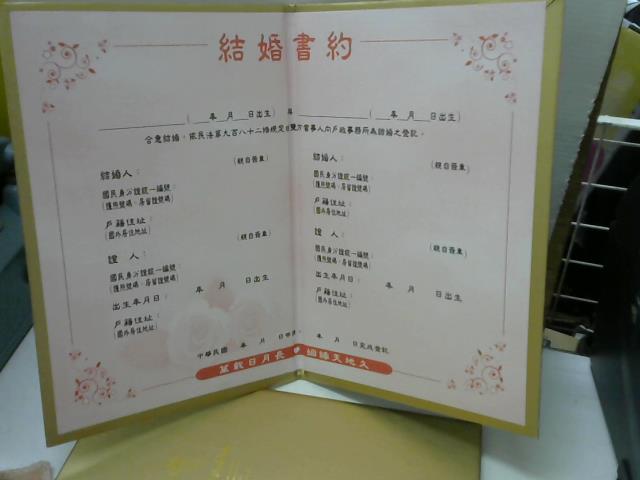 結婚書約
（ 年 月 日出生）與 （ 年 月 日出生）
合意結婚，依民法第九百八十二條規定由雙方當事人向戶政事務所為結婚之登記。
結婚人： （親自簽章）
國民身分證統一編號：
（護照號碼、居留證號碼）
戶籍住址：
（國外居住地址）
證 人： （親自簽章）
國民身分證統一編號：
（護照號碼、居留證號碼）
出生年月日： 年 月 日出生
戶籍住址：
（國外居住地址）
結婚人： （親自簽章）
國民身分證統一編號：
（護照號碼、居留證號碼）
戶籍住址：
（國外居住地址）
證 人： （親自簽章）
國民身分證統一編號：
（護照號碼、居留證號碼）
出生年月日： 年 月 日出生
戶籍住址：
（國外居住地址）
中華民國 年 月 日 年 月 日完成登記
萬載日月長 姻緣天地久